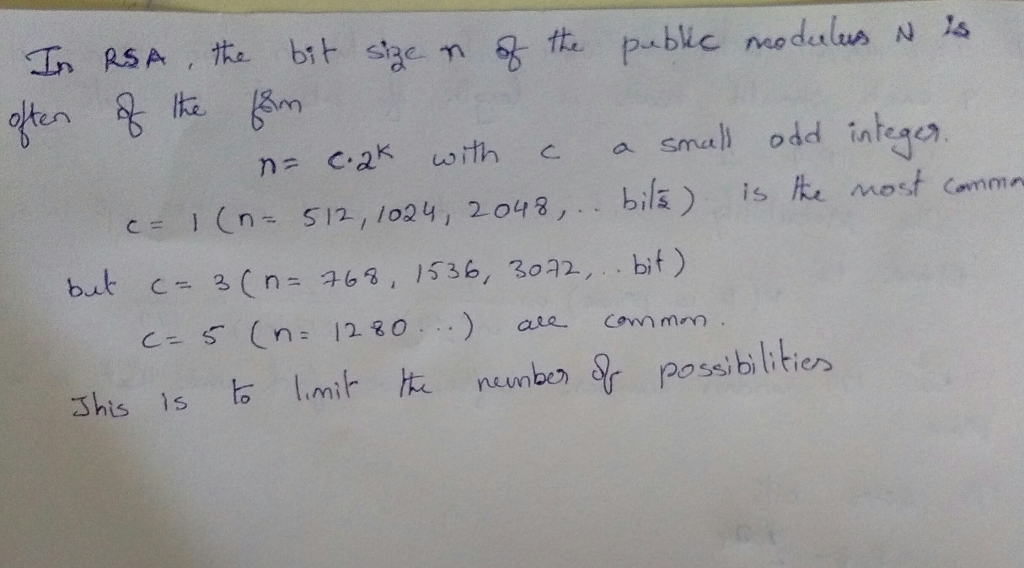 In RSA, the bit size n of the public modulus N is
often of the form
n = c.2k with c a small odd integer.
c = 1 (n = 512, 1024, 2048, .. bits) is the most common
but c = 3 (n = 768, 1536, 3072, .. bit)
c = 5 (n = 1280 ...) are common.
This is to limit the number of possibilities